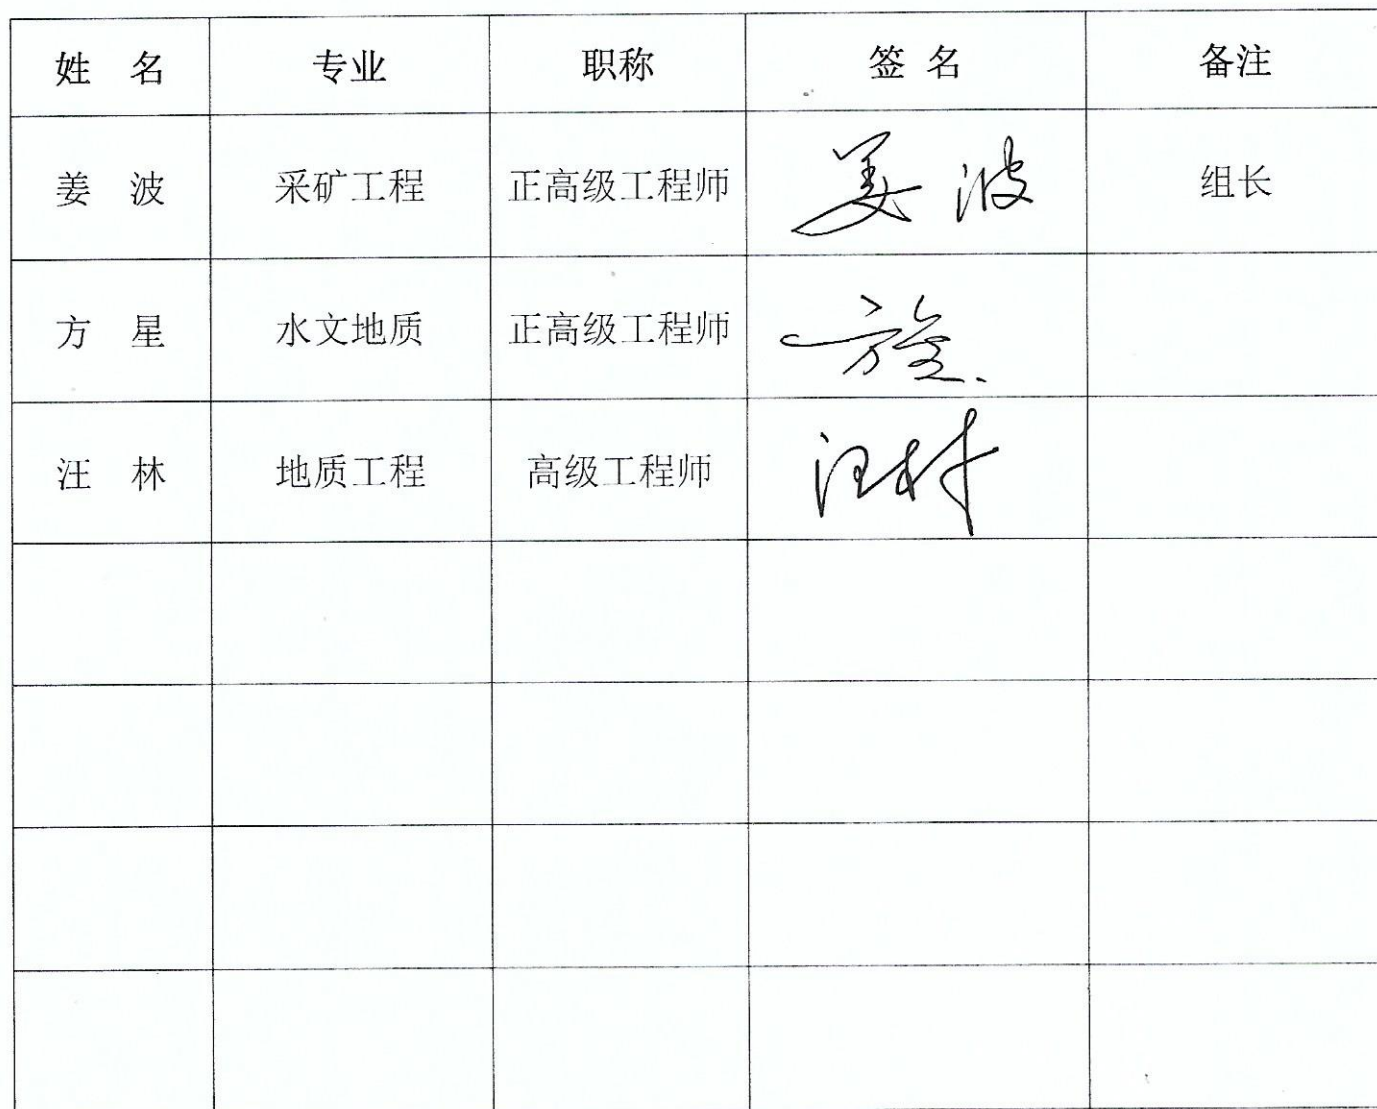 姓 名 专业 职称 签 名 备注
姜 波 采矿工程 正高级工程师 姜波 组长
方 星 水文地质 正高级工程师 方星
汪 林 地质工程 高级工程师 汪林